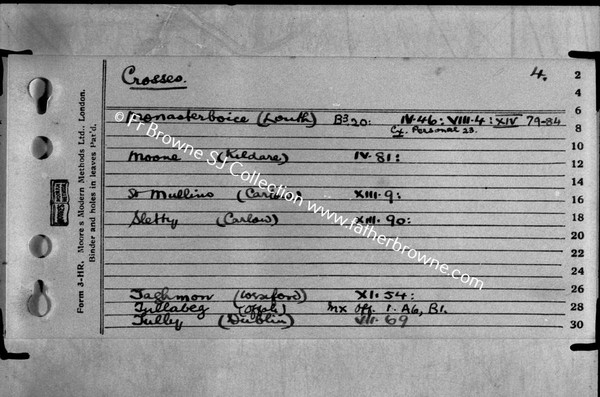 Crosses. 4.
Monasterboice (Louth) B³20: IV.46: VIII.4: XIV 79-84
Cf. Personal 23.
Moone (Kildare) IV.81:
St Mullins (Carlow) XIII.9:
Sletty (Carlow) XIII.90:
Taghmon (Wexford) XI.54:
Tullabeg (Offaly) Mx Off. 1. A6, B1.
Tully (Dublin) VII.69
2
4
6
8
10
12
14
16
18
20
22
24
26
28
30
Form 3-HR. Moore's Modern Methods Ltd., London.
Binder and holes in leaves Pat'd.
© Fr Browne SJ Collection www.fatherbrowne.com